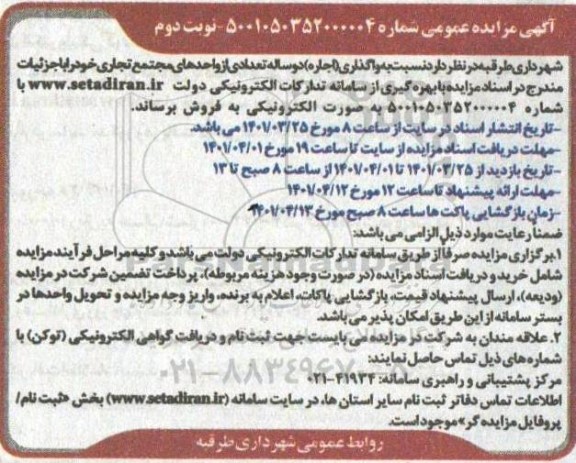 آگهی مزایده عمومی شماره ۵۰۰۱۰۵۰۳۵۲۰۰۰۰۰۴ - نوبت دوم
شهرداری طرقبه در نظر دارد نسبت به واگذاری (اجاره) دو ساله تعدادی از واحدهای مجتمع تجاری خود را با جزئیات
مندرج در اسناد مزایده با بهره گیری از سامانه تدارکات الکترونیکی دولت www.setadiran.ir با
شماره ۵۰۰۱۰۵۰۳۵۲۰۰۰۰۰۴ به صورت الکترونیکی به فروش برساند.
-تاریخ انتشار اسناد در سایت از ساعت ۸ مورخ ۱۴۰۱/۰۳/۲۵ می باشد.
-مهلت دریافت اسناد مزایده از سایت تا ساعت ۱۹ مورخ ۱۴۰۱/۰۴/۰۱
-تاریخ بازدید از ۱۴۰۱/۰۳/۲۵ تا ۱۴۰۱/۰۴/۰۱ از ساعت ۸ صبح تا ۱۳
-مهلت ارائه پیشنهاد تا ساعت ۱۲ مورخ ۱۴۰۱/۰۴/۱۲
-زمان بازگشایی پاکت ها ساعت ۸ صبح مورخ ۱۴۰۱/۰۴/۱۳
ضمنا رعایت موارد ذیل الزامی می باشد:
۱. برگزاری مزایده صرفا از طریق سامانه تدارکات الکترونیکی دولت می باشد و کلیه مراحل فرآیند مزایده
شامل خرید و دریافت اسناد مزایده (در صورت وجود هزینه مربوطه)، پرداخت تضمین شرکت در مزایده
(ودیعه)، ارسال پیشنهاد قیمت، بازگشایی پاکات، اعلام به برنده، واریز وجه مزایده و تحویل واحدها در
بستر سامانه از این طریق امکان پذیر می باشد.
۲. علاقه مندان به شرکت در مزایده می بایست جهت ثبت نام و دریافت گواهی الکترونیکی (توکن) با
شماره های ذیل تماس حاصل نمایند:
مرکز پشتیبانی و راهبری سامانه: ۴۱۹۳۴-۰۲۱
اطلاعات تماس دفاتر ثبت نام سایر استان ها، در سایت سامانه (www.setadiran.ir) بخش «ثبت نام/
پروفایل مزایده گر» موجود است.
روابط عمومی شهرداری طرقبه